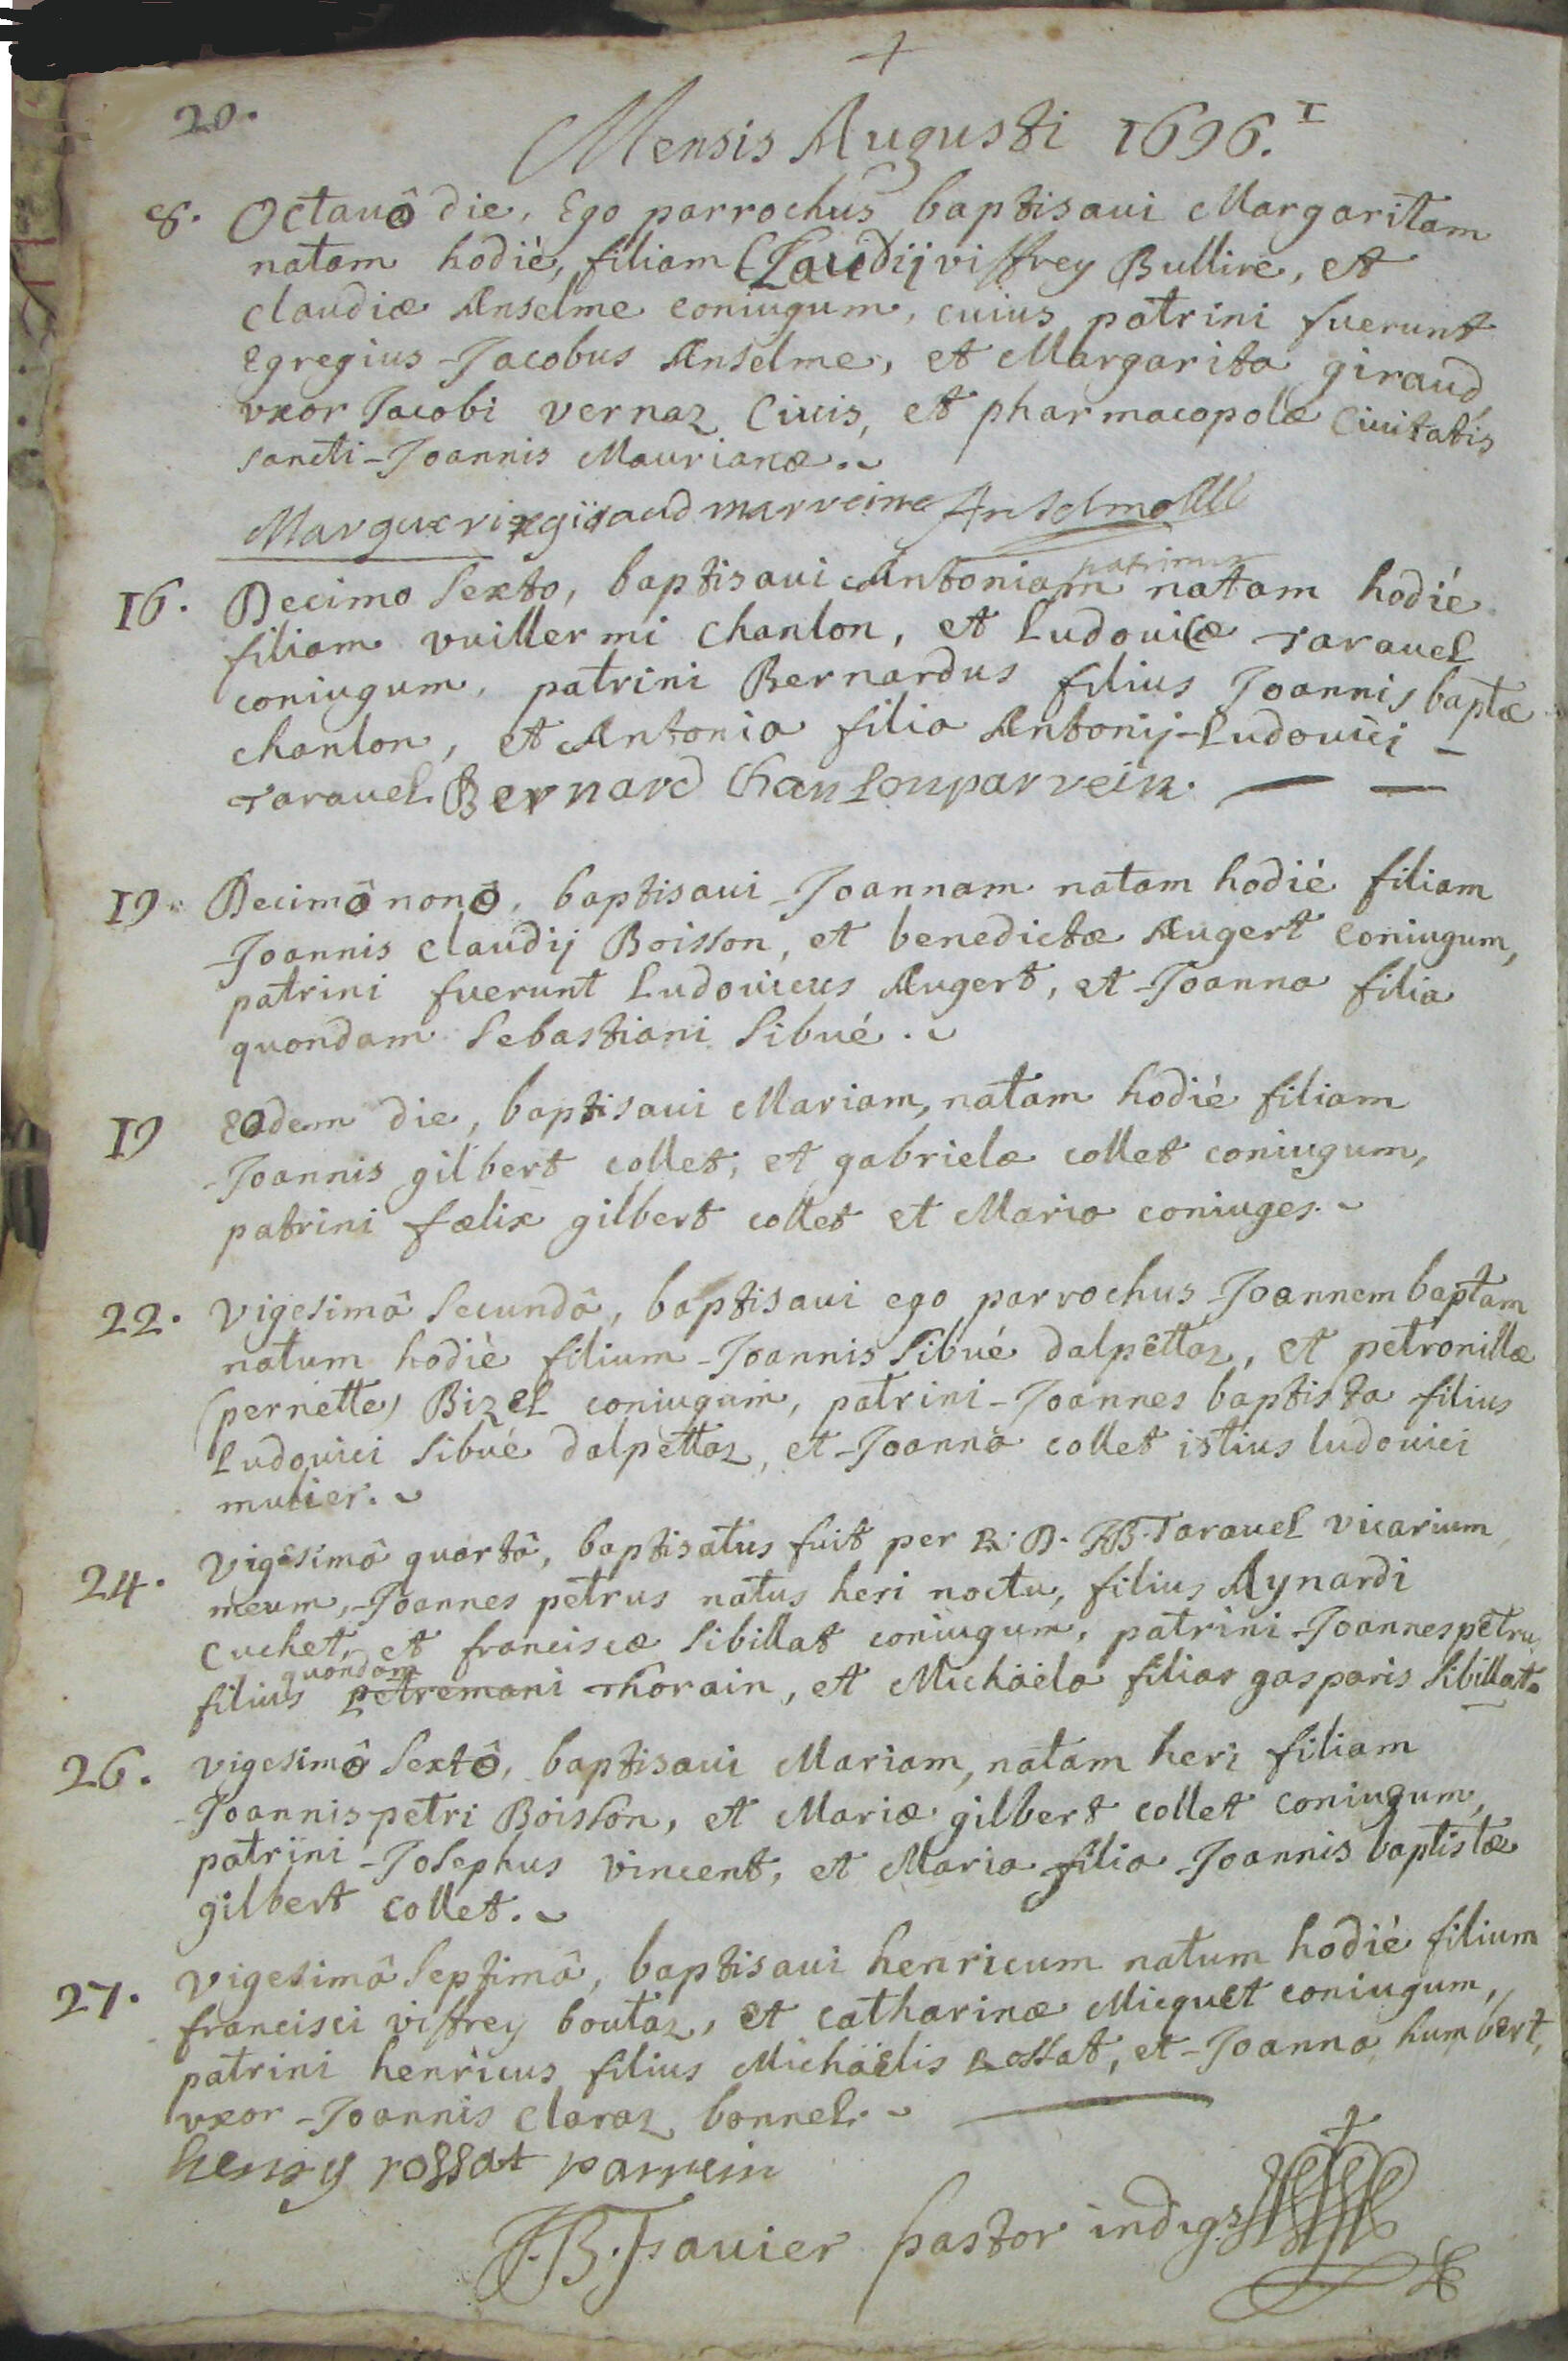 20.
Mensis Augusti 1696.
8. Octauô die, Ego parrochus baptisaui Margaritam
natam hodiè, filiam Claudij viffrey Bullire, et
claudiæ Anselme coniugum, cuius patrini fuerunt
Egregius Jacobus Anselme, et Margarita giraud
vxor Jacobi vernaz Ciuis, et pharmacopolæ Ciuitatis
sancti-Joannis Maurianæ.
Marguerite giraud marreine Anselme
patrinus
16. Decimo sexto, baptisaui Antoniam natam hodié
filiam vuillermi chanlon, et Ludouicæ Tarauel
coniugum, patrini Bernardus filius Joannis baptæ
chanlon, et Antonia filia Antonij-Ludouici
Tarauel. Bernard Chanlon parrein.
19. Decimô nonô, baptisaui Joannam natam hodié filiam
Joannis claudij Boisson, et benedictæ Augert coniugum,
patrini fuerunt Ludouicus Augert, et Joanna filia
quondam Sebastiani Sibué.
19 Eodem die, baptisaui Mariam, natam hodié filiam
Joannis gilbert collet, et gabrielæ collet coniugum,
patrini fælix gilbert collet et Maria coniuges.
22. vigesimâ secundâ, baptisaui ego parrochus Joannem baptam
natum hodiè filium Joannis Sibué dalpettaz, et petronillæ
(pernette) Bizel coniugum, patrini Joannes baptista filius
Ludouici Sibué dalpettaz, et Joanna collet istius ludouici
mulier.
24. vigesimâ quartâ, baptisatus fuit per R. D. JB. Tarauel vicarium
meum, Joannes petrus natus heri noctu, filius Aynardi
Cuchet, et franciscæ Sibillat coniugum, patrini Joannes petrus
quondam
filius petremani Thorain, et Michäela filia gasparis Sibillat.
26. vigesimô sextô, baptisaui Mariam, natam heri filiam
Joannis petri Boisson, et Mariæ gilbert collet coniugum,
patrini Josephus vincent, et Maria filia Joannis baptistæ
gilbert collet.
27. vigesimâ septimâ, baptisaui henricum natum hodié filium
francisci viffrey boutaz, et catharinæ Micquet coniugum,
patrini henricus filius Michäelis Rossat, et Joanna humbert,
vxor Joannis claraz bonnel.
henry rossat parrein
J.B. Favier pastor indigs